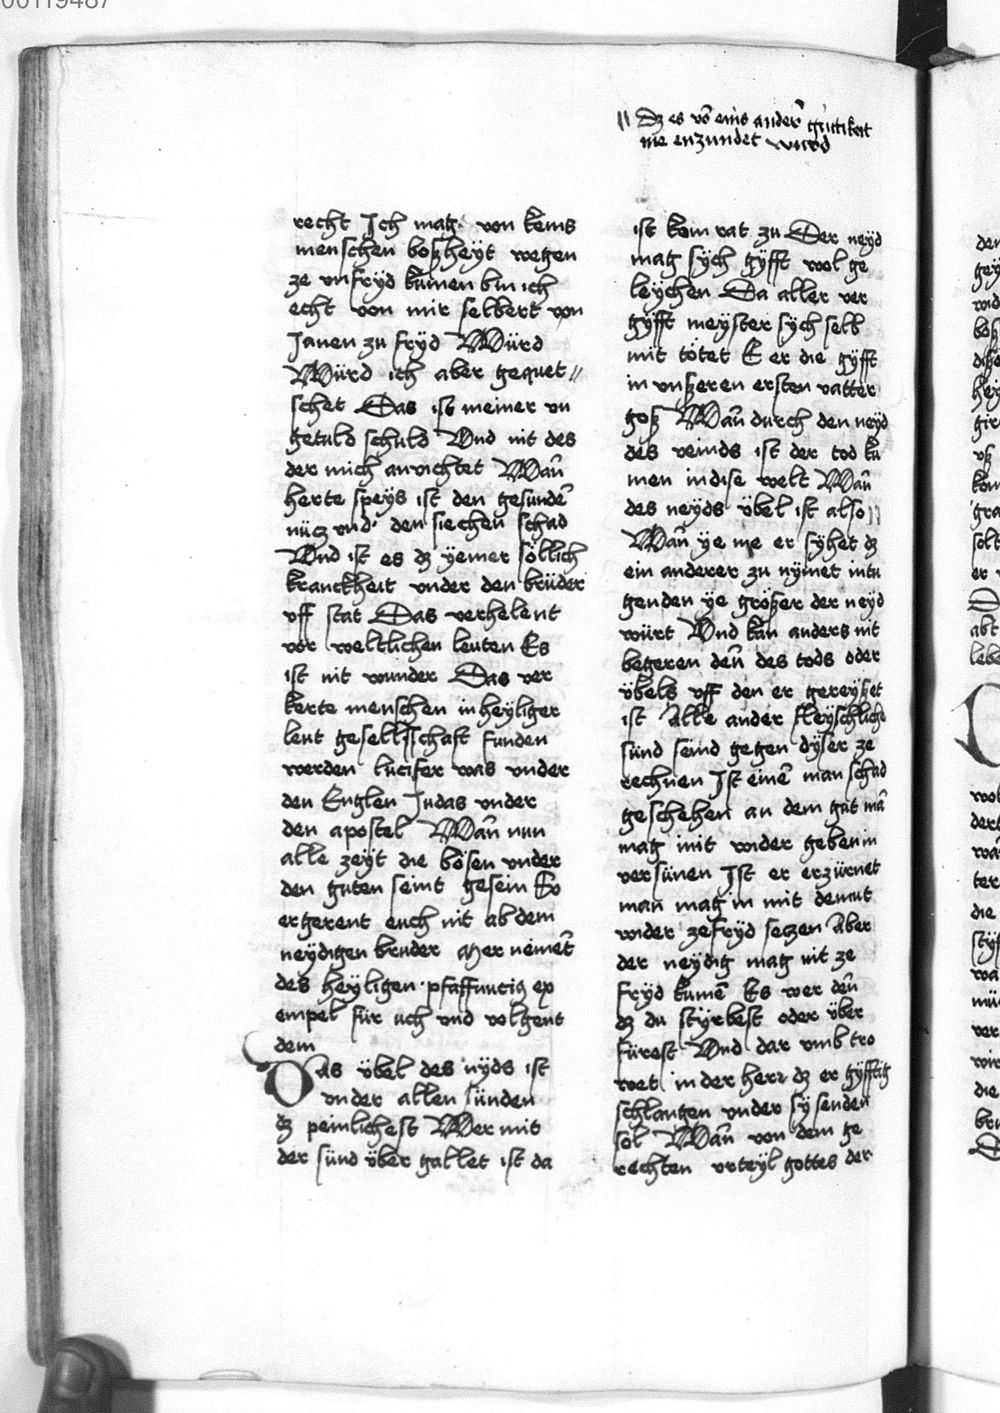 00119487
// Dz es vō eins anderr gu̇tikeit
nie enzundet wurd
recht Ich mag von keins
menschen boßheÿt wegen
ze vnfryd kumen bin ich
echt von mir selbert von
Janen zu fryd Würd
Würd ich aber gequet//
schet Das ist meiner vn
getuld schuld Vnd nit des
der mich anvichtet Wan̄
herte speÿs ist den gesundē
nücz vnd den siechen schad
Vnd ist es dz ÿemer söllich
kranckheit vnder den brüder
vff stat Das verhelent
vor weltlichen leuten Es
ist nit wunder Das ver
kerte menschen in heÿliger
leut gesellschaft funden
werden lucifer was vnder
den Englen Judas vnder
den apostel Wan̄ nun
alle zeÿt die bösen vnder
den guten seint gesein So
ergerent euch nit ab dem
neÿdigen bruder aber nemēt
des heÿligen pfaffnucig ex
empel für uch vnd volgent
dem
Das übel des nÿds ist
vnder allen sünden
dz peinlichest Wer mit
der sünd über gallet ist da
ist kom rat zu Der neÿd
mag sÿch gÿfft wol ge
leÿchen Da aller ver
gÿfft meÿster sÿch selb
mit tötet E er die gÿfft
in vnßeren ersten vatter
goß Wan̄ durch den neÿd
des veinds ist der tod ku
men in dise welt Wan̄
des neÿds übel ist also //
Wan̄ ÿe me er sÿhet dz
ein anderer zu nÿmet in tu
genden ÿe größer der neÿd
würt Vnd kan anders nit
begeren den̄ des tods oder
übels vff den er gereÿßet
ist Alle ander fleÿschliche
sünd seind gegen dÿser ze
rechnen Ist einē man schad
geschehen an dem gut mā
mag mit wider geben in
versünen Ist er erzürnet
man mag in mit demut
wider ze fryd seczen Aber
der neÿdig mag nit ze
fryd kumē Es wer den̄
dz du stÿrbest oder über
fürest Vnd dar vmb tro
wet in der herr dz er gÿfftig
schlangen vnder sÿ senden
söl Wan̄ von dem ge
rechten vrteÿl gottes der